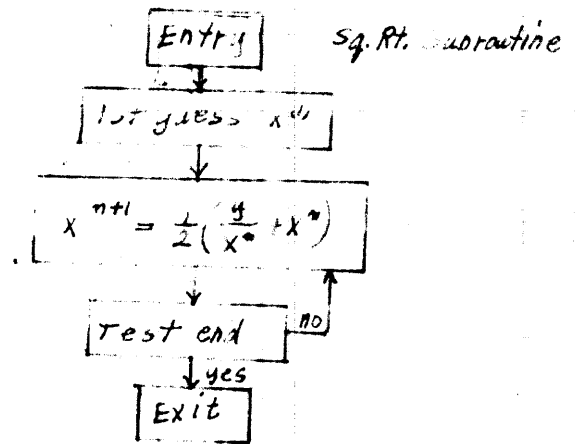 Entry
Sq. Rt. Subroutine
1st guess x⁽¹⁾
x^{n+1} = 1/2 (y/x^n + x^n)
Test end
no
yes
Exit